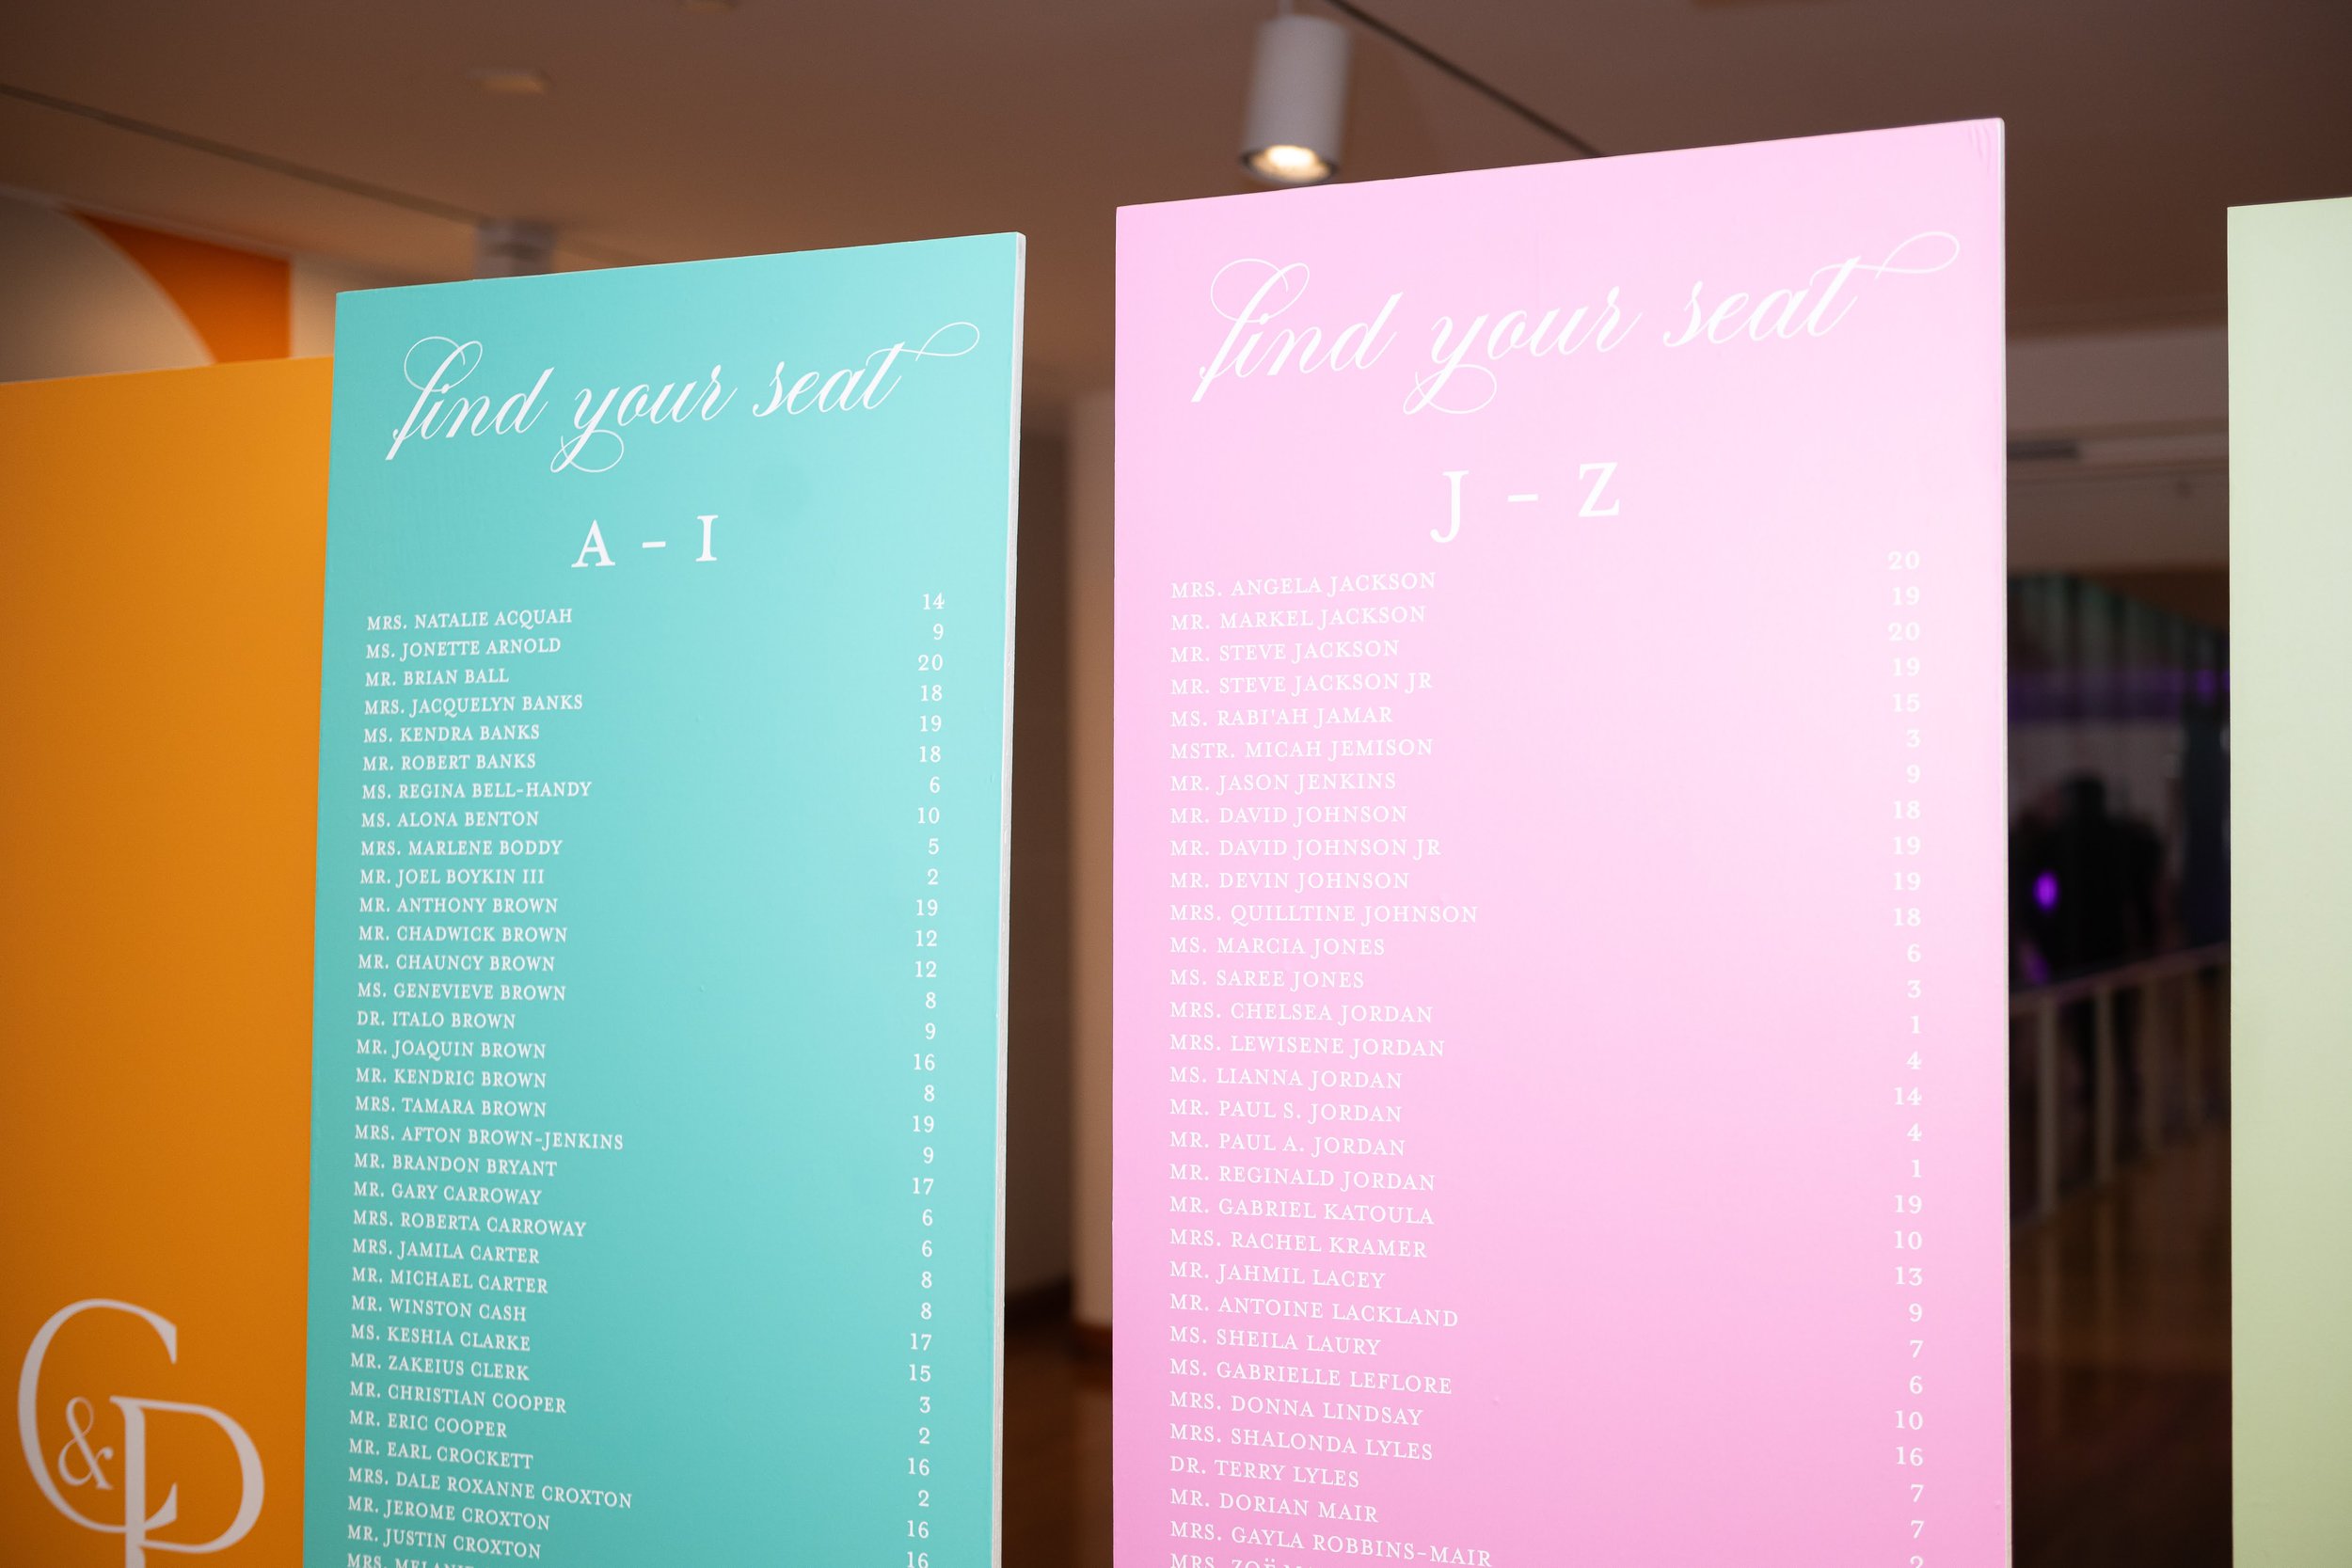 C&P
find your seat
A - I
MRS. NATALIE ACQUAH 14
MS. JONETTE ARNOLD 9
MR. BRIAN BALL 20
MRS. JACQUELYN BANKS 18
MS. KENDRA BANKS 19
MR. ROBERT BANKS 18
MS. REGINA BELL-HANDY 6
MS. ALONA BENTON 10
MRS. MARLENE BODDY 5
MR. JOEL BOYKIN III 2
MR. ANTHONY BROWN 19
MR. CHADWICK BROWN 12
MR. CHAUNCY BROWN 12
MS. GENEVIEVE BROWN 8
DR. ITALO BROWN 9
MR. JOAQUIN BROWN 16
MR. KENDRIC BROWN 8
MRS. TAMARA BROWN 19
MRS. AFTON BROWN-JENKINS 9
MR. BRANDON BRYANT 17
MR. GARY CARROWAY 6
MRS. ROBERTA CARROWAY 6
MRS. JAMILA CARTER 8
MR. MICHAEL CARTER 8
MR. WINSTON CASH 17
MS. KESHIA CLARKE 15
MR. ZAKEIUS CLERK 3
MR. CHRISTIAN COOPER 2
MR. ERIC COOPER 16
MR. EARL CROCKETT 2
MRS. DALE ROXANNE CROXTON 16
MR. JEROME CROXTON 16
MR. JUSTIN CROXTON
MRS.
find your seat
J - Z
MRS. ANGELA JACKSON 20
MR. MARKEL JACKSON 19
MR. STEVE JACKSON 20
MR. STEVE JACKSON JR 19
MS. RABI'AH JAMAR 15
MSTR. MICAH JEMISON 3
MR. JASON JENKINS 9
MR. DAVID JOHNSON 18
MR. DAVID JOHNSON JR 19
MR. DEVIN JOHNSON 19
MRS. QUILLTINE JOHNSON 18
MS. MARCIA JONES 6
MS. SAREE JONES 3
MRS. CHELSEA JORDAN 1
MRS. LEWISENE JORDAN 4
MS. LIANNA JORDAN 14
MR. PAUL S. JORDAN 4
MR. PAUL A. JORDAN 1
MR. REGINALD JORDAN 19
MR. GABRIEL KATOULA 10
MRS. RACHEL KRAMER 13
MR. JAHMIL LACEY 9
MR. ANTOINE LACKLAND 7
MS. SHEILA LAURY 6
MS. GABRIELLE LEFLORE 10
MRS. DONNA LINDSAY 16
MRS. SHALONDA LYLES 7
DR. TERRY LYLES 7
MR. DORIAN MAIR 2
MRS. GAYLA ROBBINS-MAIR
MRS. ZOË